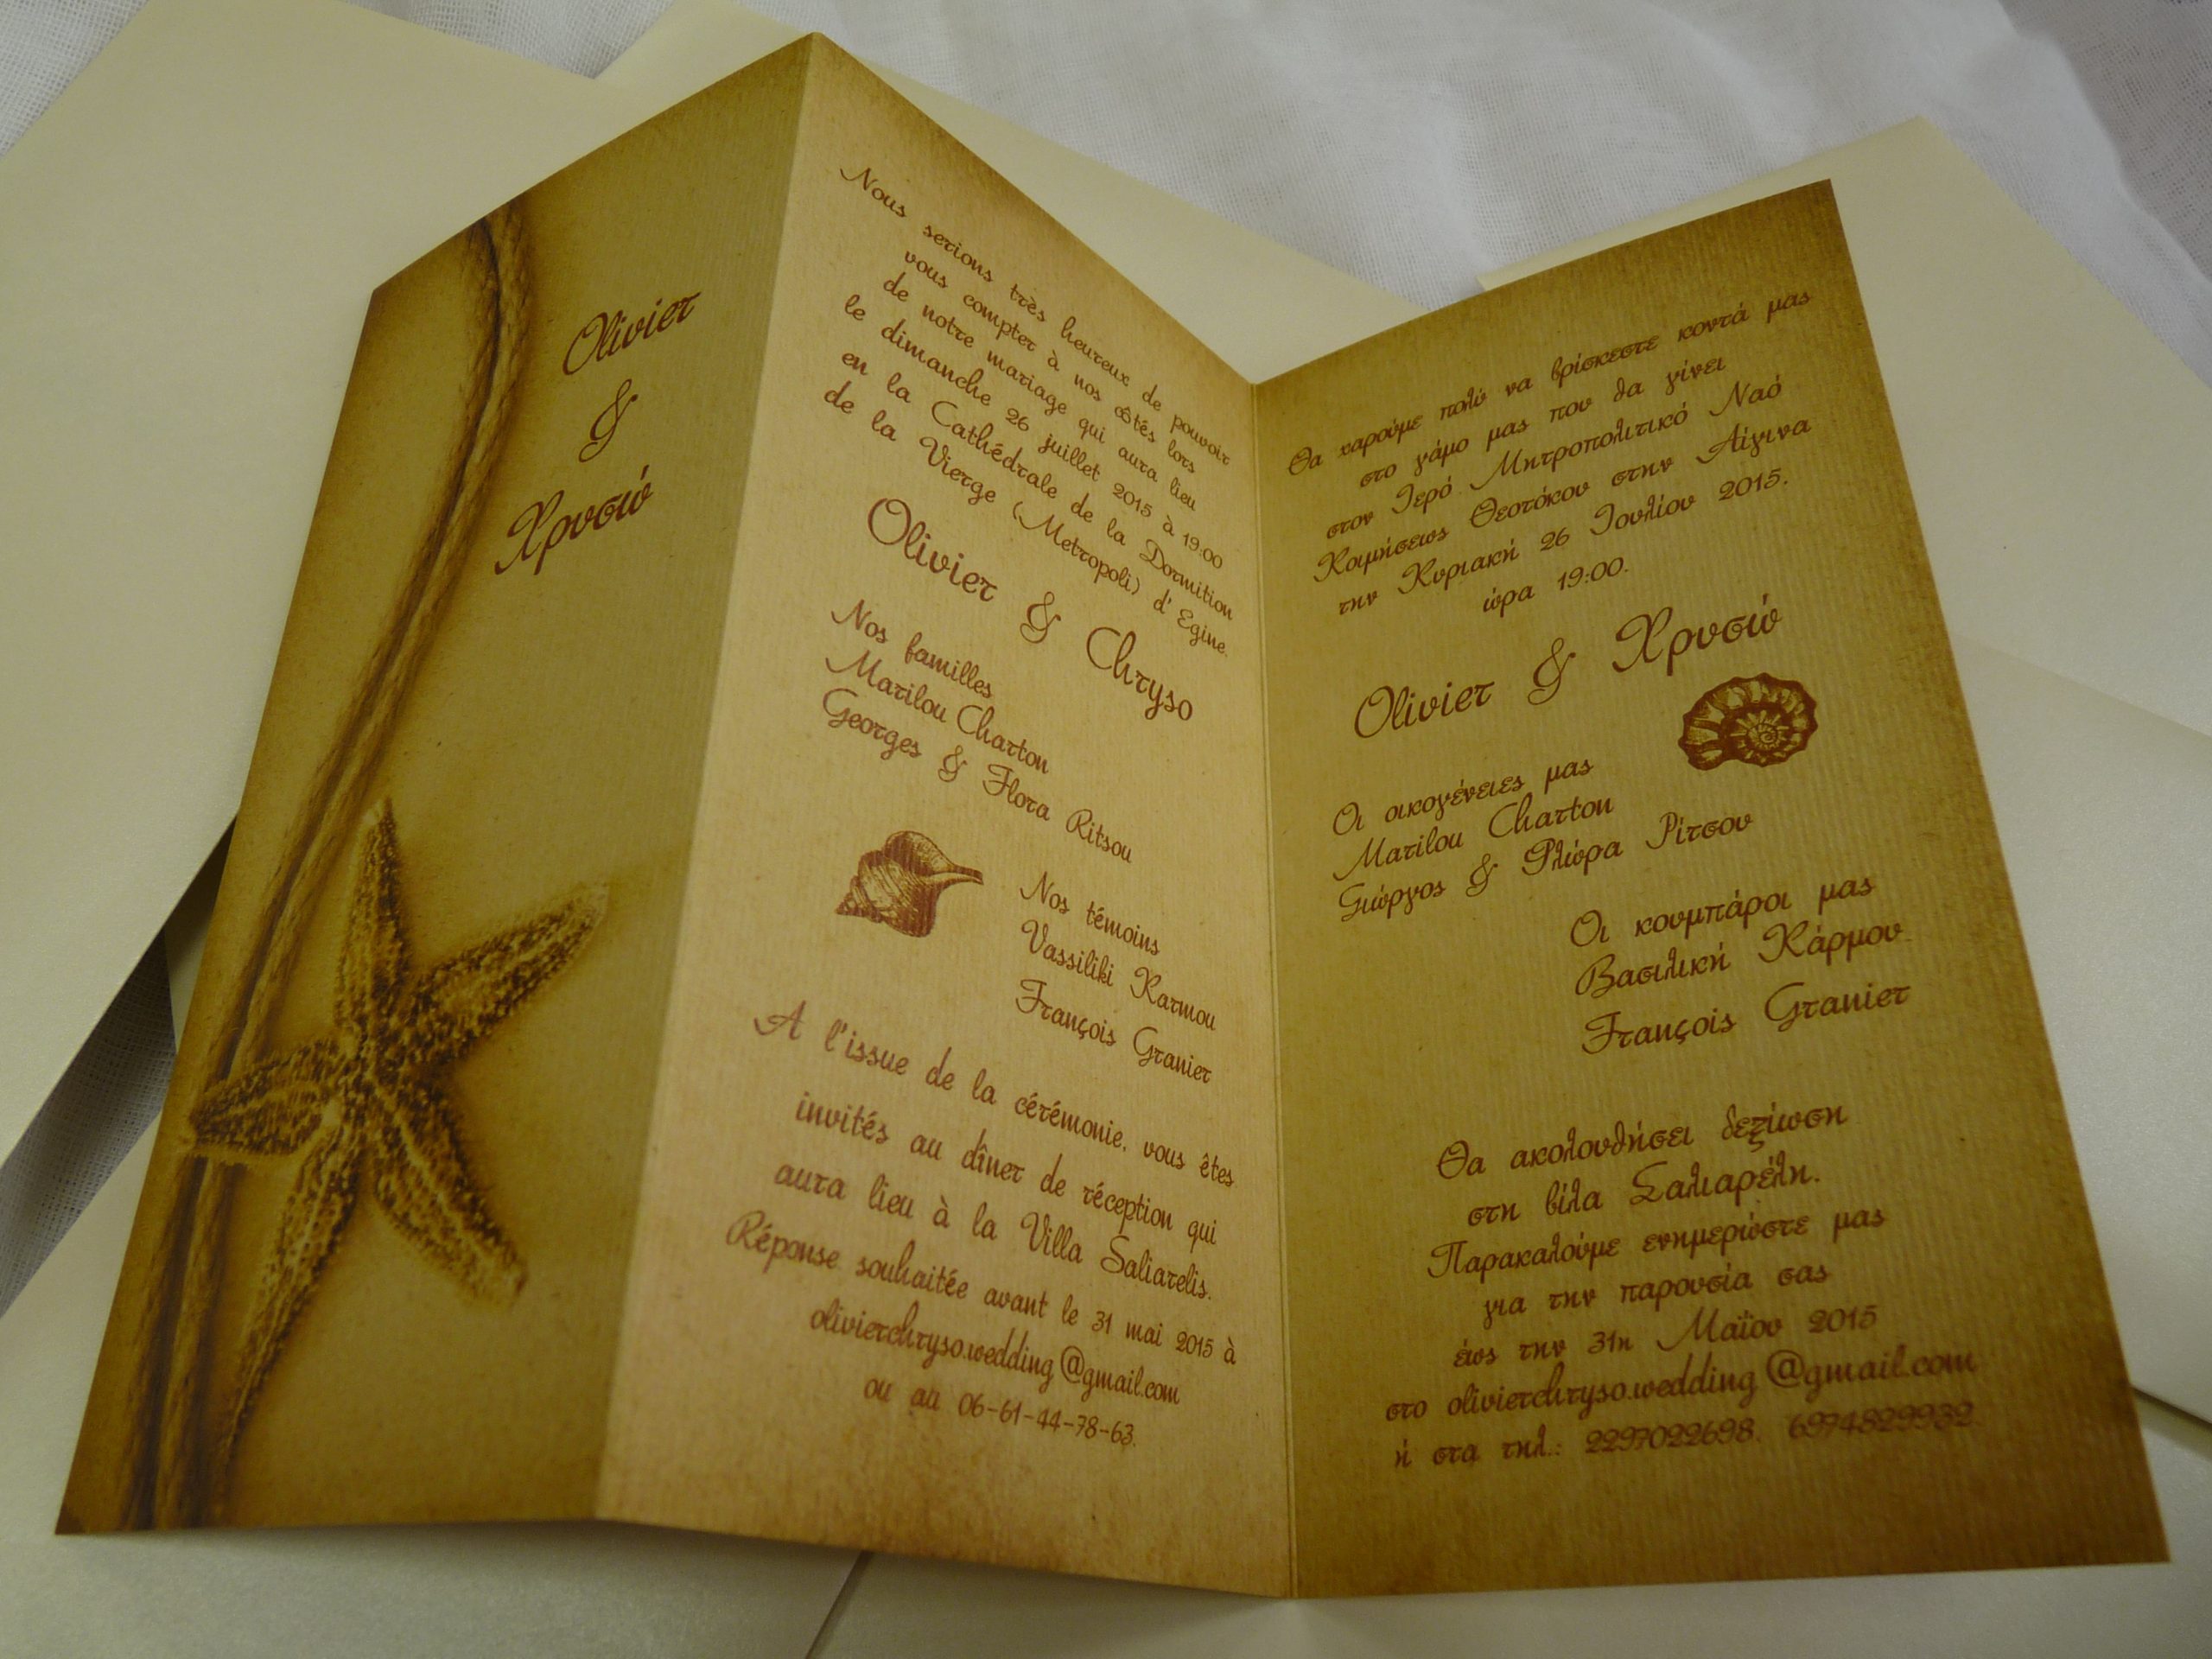 Olivier
&
Χρυσώ
Nous serions très heureux de pouvoir
vous compter à nos côtés lors
de notre mariage qui aura lieu
le dimanche 26 juillet 2015 à 19:00
en la Cathédrale de la Dormition
de la Vierge (Metropoli) d'Egine.
Olivier & Chryso
Nos familles
Marilou Charton
Georges & Flora Ritsou
Nos témoins
Vassiliki Karmou
François Granier
A l'issue de la cérémonie, vous êtes
invités au dîner de réception qui
aura lieu à la Villa Saliarelis.
Réponse souhaitée avant le 31 mai 2015 à
olivierchryso.wedding@gmail.com
ou au 06-61-44-78-63.
Θα χαρούμε πολύ να βρίσκεστε κοντά μας
στο γάμο μας που θα γίνει
στον Ιερό Μητροπολιτικό Ναό
Κοιμήσεως Θεοτόκου στην Αίγινα
την Κυριακή 26 Ιουλίου 2015,
ώρα 19:00.
Olivier & Χρυσώ
Οι οικογένειες μας
Marilou Charton
Γιώργος & Φλώρα Ρίτσου
Οι κουμπάροι μας
Βασιλική Κάρμου
François Granier
Θα ακολουθήσει δεξίωση
στη βίλα Σαλιαρέλη.
Παρακαλούμε ενημερώστε μας
για την παρουσία σας
έως την 31η Μαΐου 2015
στο olivierchryso.wedding@gmail.com
ή στα τηλ.: 2297022698, 6974829932